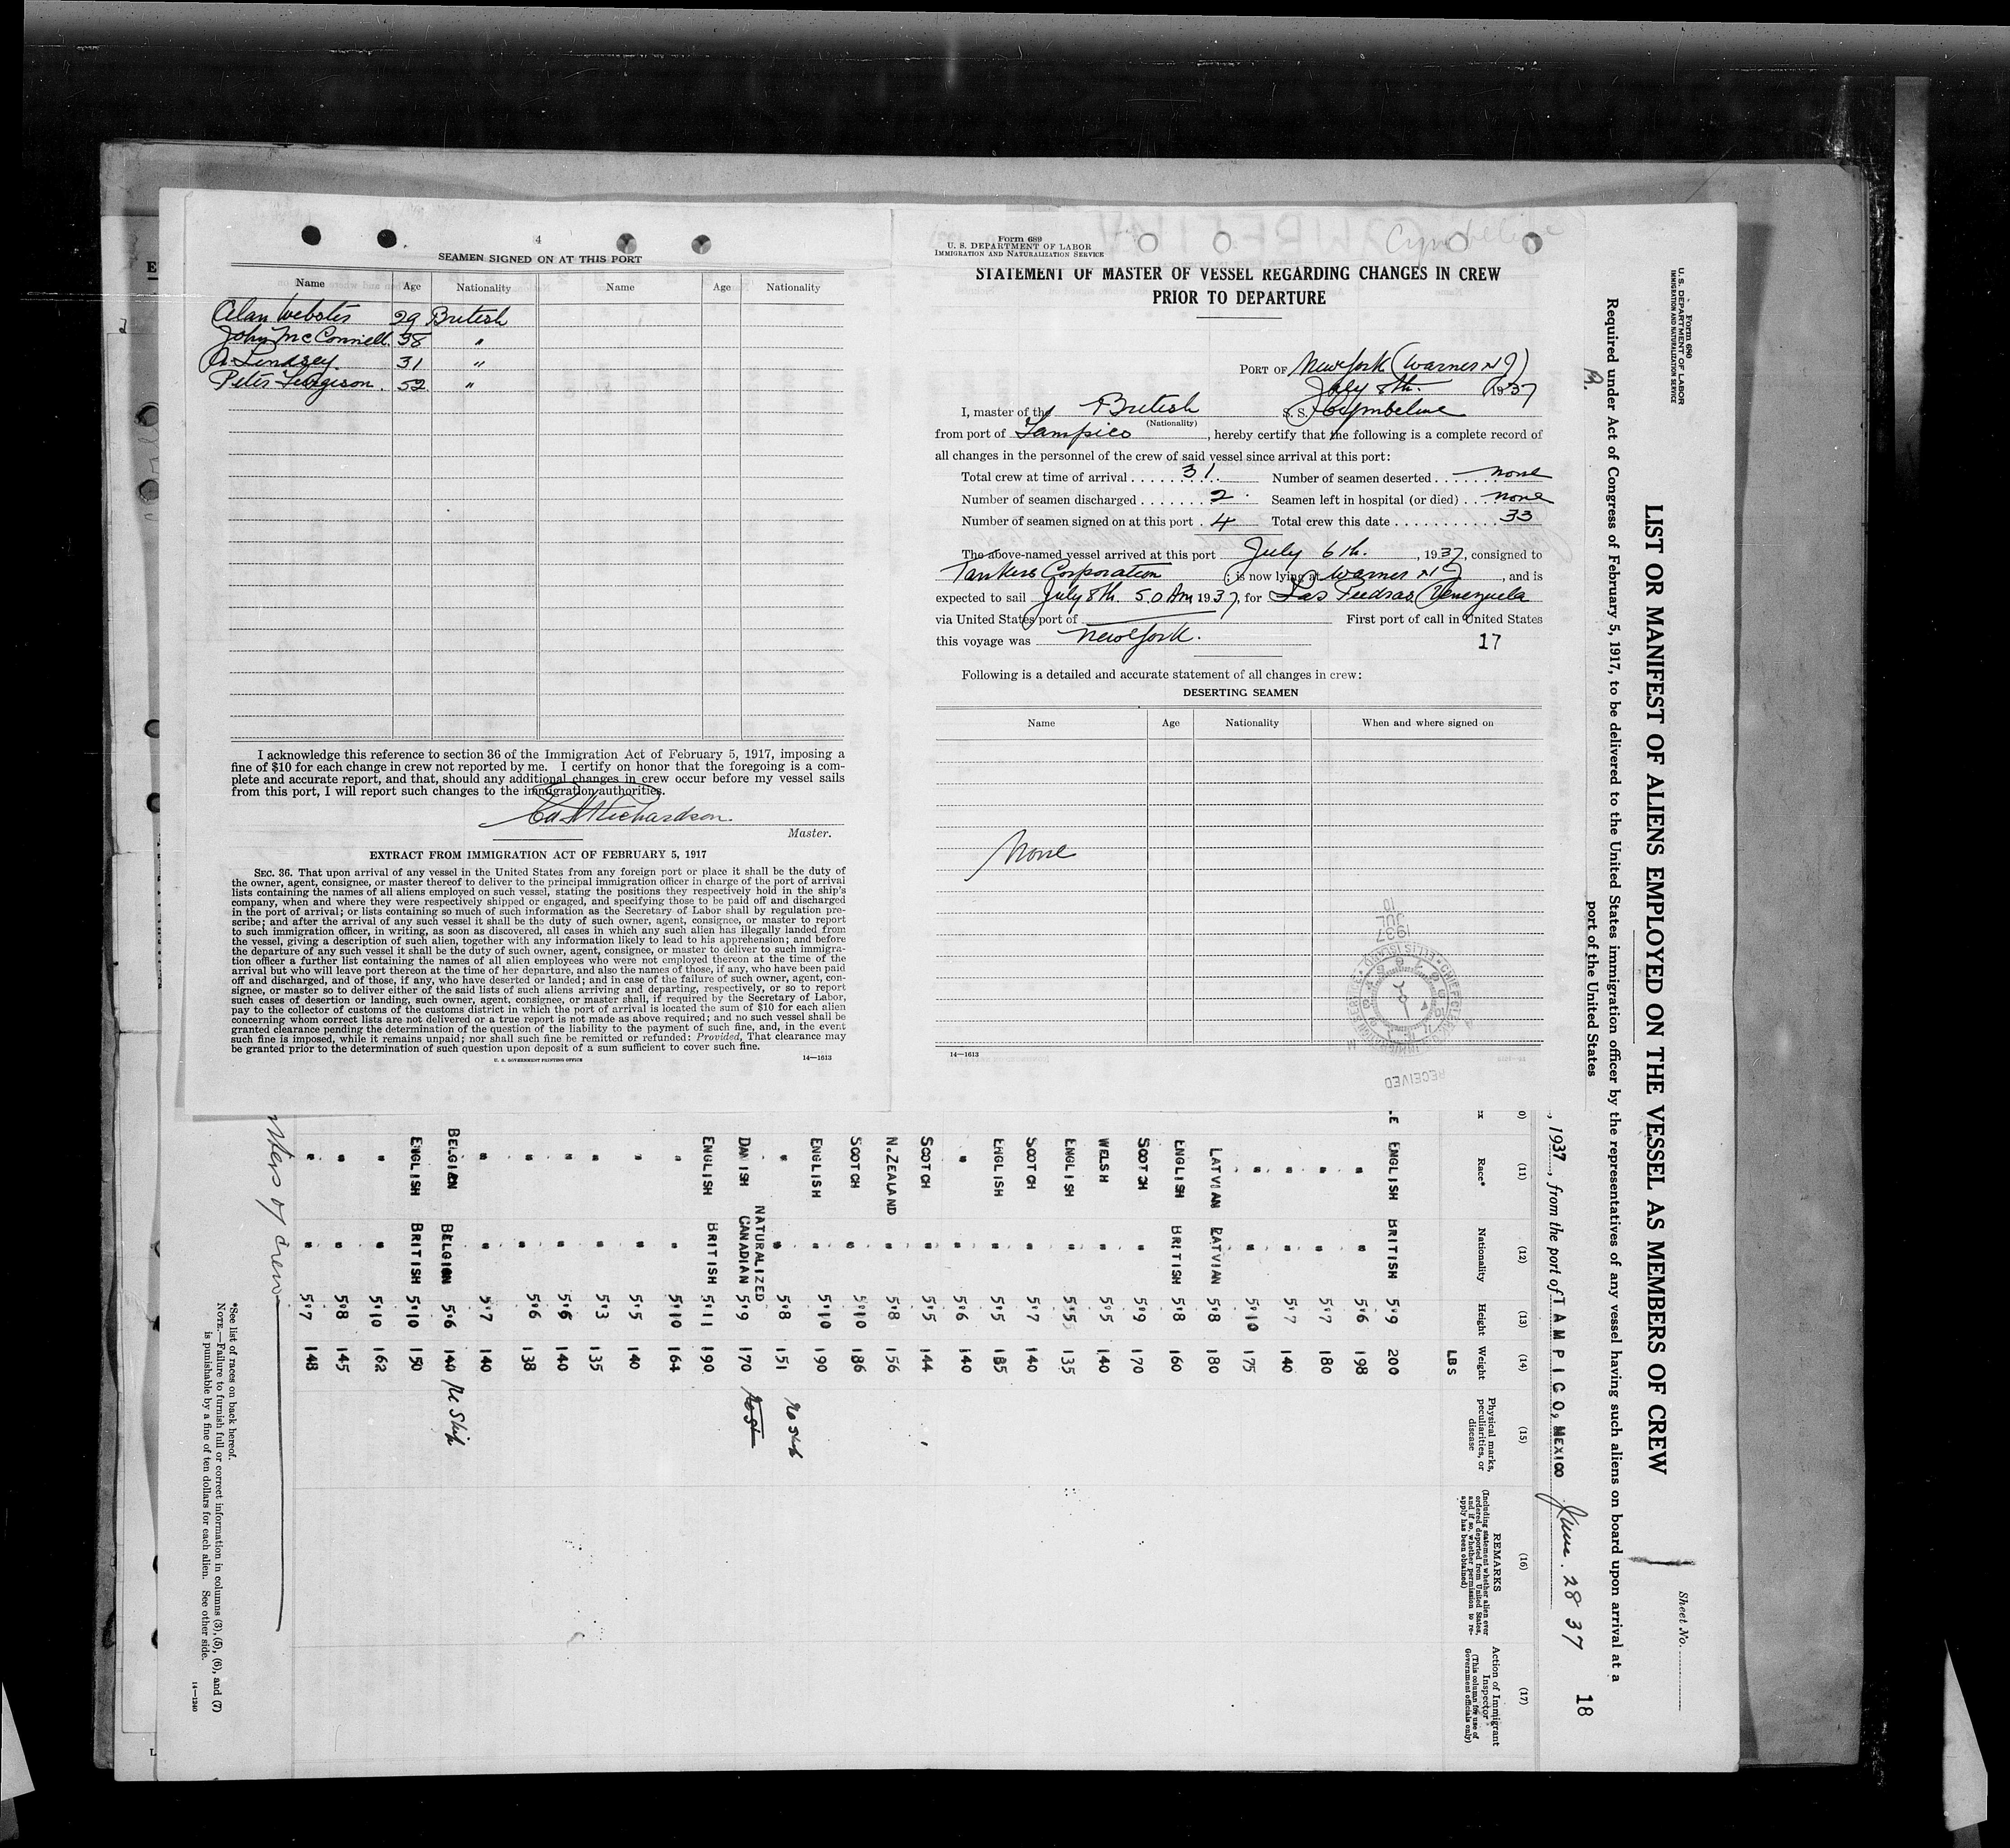 4
SEAMEN SIGNED ON AT THIS PORT
Name Age Nationality Name Age Nationality
Alan Webster 29 British
John McConnell 38 "
A. Lindsey 31 "
Peter Fergison 52 "
I acknowledge this reference to section 36 of the Immigration Act of February 5, 1917, imposing a
fine of $10 for each change in crew not reported by me. I certify on honor that the foregoing is a com-
plete and accurate report, and that, should any additional changes in crew occur before my vessel sails
from this port, I will report such changes to the immigration authorities.
Richardson.
Master.
EXTRACT FROM IMMIGRATION ACT OF FEBRUARY 5, 1917
SEC. 36. That upon arrival of any vessel in the United States from any foreign port or place it shall be the duty of
the owner, agent, consignee, or master thereof to deliver to the principal immigration officer in charge of the port of arrival
lists containing the names of all aliens employed on such vessel, stating the positions they respectively hold in the ship's
company, when and where they were respectively shipped or engaged, and specifying those to be paid off and discharged
in the port of arrival; or lists containing so much of such information as the Secretary of Labor shall by regulation pre-
scribe; and after the arrival of any such vessel it shall be the duty of such owner, agent, consignee, or master to report
to such immigration officer, in writing, as soon as discovered, all cases in which any such alien has illegally landed from
the vessel, giving a description of such alien, together with any information likely to lead to his apprehension; and before
the departure of any such vessel it shall be the duty of such owner, agent, consignee, or master to deliver to such immigra-
tion officer a further list containing the names of all alien employees who were not employed thereon at the time of the
arrival but who will leave port thereon at the time of her departure, and also the names of those, if any, who have been paid
off and discharged, and of those, if any, who have deserted or landed; and in case of the failure of such owner, agent, con-
signee, or master so to deliver either of the said lists of such aliens arriving and departing, respectively, or so to report
such cases of desertion or landing, such owner, agent, consignee, or master shall, if required by the Secretary of Labor,
pay to the collector of customs of the customs district in which the port of arrival is located the sum of $10 for each alien
concerning whom correct lists are not delivered or a true report is not made as above required; and no such vessel shall be
granted clearance pending the determination of the question of the liability to the payment of such fine, and, in the event
such fine is imposed, while it remains unpaid; nor shall such fine be remitted or refunded: Provided, That clearance may
be granted prior to the determination of such question upon deposit of a sum sufficient to cover such fine.
U. S. GOVERNMENT PRINTING OFFICE 14—1613
Form 689
U. S. DEPARTMENT OF LABOR
IMMIGRATION AND NATURALIZATION SERVICE
Cymbeline
STATEMENT OF MASTER OF VESSEL REGARDING CHANGES IN CREW
PRIOR TO DEPARTURE
PORT OF New York (Warner NJ)
July 8th. 1937
I, master of the British S. S. Cymbeline
(Nationality)
from port of Tampico, hereby certify that the following is a complete record of
all changes in the personnel of the crew of said vessel since arrival at this port:
Total crew at time of arrival 31. Number of seamen deserted none
Number of seamen discharged 2. Seamen left in hospital (or died) none
Number of seamen signed on at this port 4 Total crew this date 33
The above-named vessel arrived at this port July 6th., 1937, consigned to
Tankers Corporation; is now lying at Warner NJ, and is
expected to sail July 8th 5.0 Am 1937, for Las Piedras Venezuela
via United States port of First port of call in United States
this voyage was New York.
17
Following is a detailed and accurate statement of all changes in crew:
DESERTING SEAMEN
Name Age Nationality When and where signed on
None
14—1613
1937 JUL 10
RECEIVED
Form 680
U. S. DEPARTMENT OF LABOR
IMMIGRATION AND NATURALIZATION SERVICE
Sheet No.
LIST OR MANIFEST OF ALIENS EMPLOYED ON THE VESSEL AS MEMBERS OF CREW
Required under Act of Congress of February 5, 1917, to be delivered to the United States immigration officer by the representatives of any vessel having such aliens on board upon arrival at a
port of the United States
18
, 1937, from the port of TAMPICO, MEXICO June. 28 37
(11) (12) (13) (14) (15) (16) (17)
Race* Nationality Height Weight Physical marks, peculiarities, or disease REMARKS (Including statement whether alien ever ordered deported from United States, and if so, whether permission to re-apply has been obtained) Action of Immigrant Inspector (This column for use of Government officials only)
LBS
ENGLISH BRITISH 5'9 200
" " 5'6 198
" " 5'7 180
" " 5'7 140
" " 5'10 175
LATVIAN LATVIAN 5'8 180
ENGLISH BRITISH 5'8 160
SCOTCH " 5'9 170
WELSH " 5'5 140
ENGLISH " 5'5 135
SCOTCH " 5'7 140
ENGLISH " 5'5 135
" " 5'6 140
SCOTCH " 5'5 144
N.ZEALAND " 5'8 156
SCOTCH " 5'10 186
ENGLISH " 5'10 190
" " 5'8 151
DANISH NATURALIZED CANADIAN 5'9 170
ENGLISH BRITISH 5'11 190
" " 5'10 164
" " 5'5 140
" " 5'3 135
" " 5'6 140
" " 5'6 138
" " 5'7 140
BELGIAN BELGION 5'6 140
ENGLISH BRITISH 5'10 150
" " 5'10 162
" " 5'8 145
" " 5'7 148
of crew
*See list of races on back hereof.
NOTE.—Failure to furnish full or correct information in columns (3), (5), (6), and (7)
is punishable by a fine of ten dollars for each alien. See other side.
14—1240